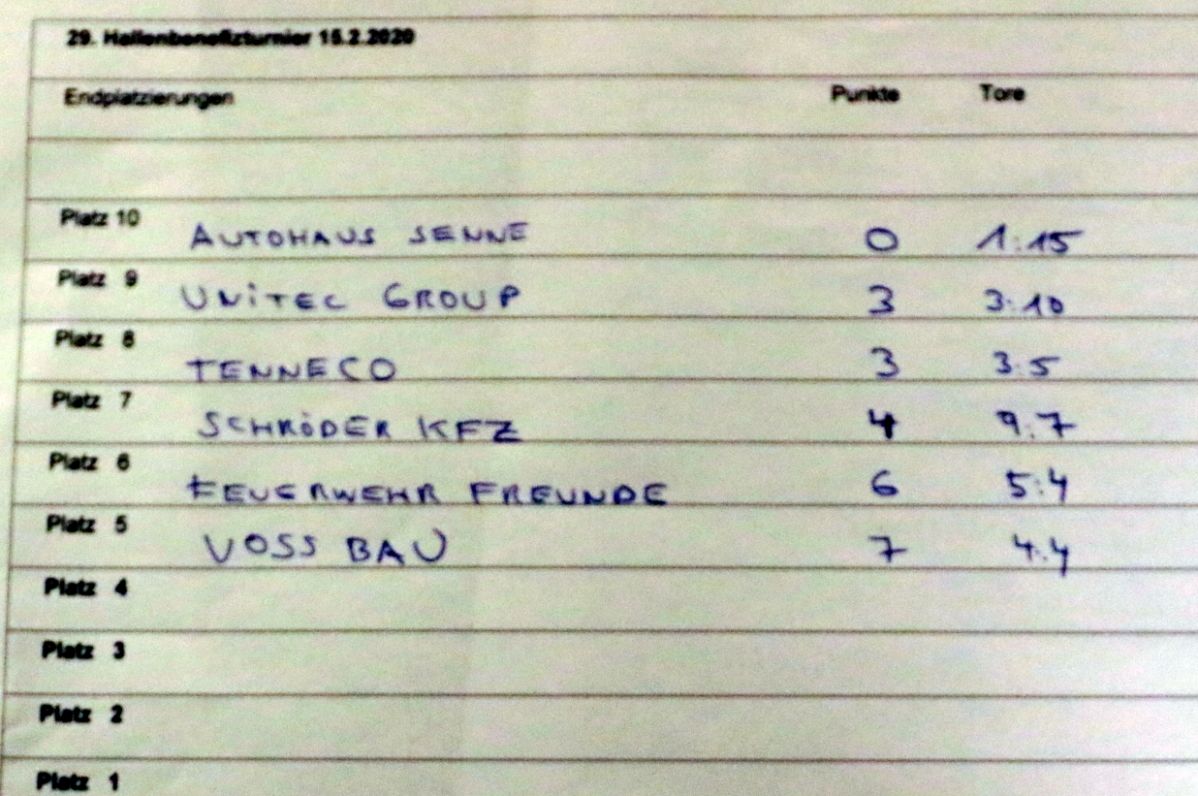 29. Hallenbenefizturnier 15.2.2020
Endplatzierungen Punkte Tore
Platz 10 AUTOHAUS SENNE 0 1:15
Platz 9 UNiTEC GROUP 3 3:10
Platz 8 TENNECO 3 3:5
Platz 7 SCHRÖDER KFZ 4 9:7
Platz 6 FEUERWEHR FREUNDE 6 5:4
Platz 5 VOSS BAU 7 4:4
Platz 4
Platz 3
Platz 2
Platz 1